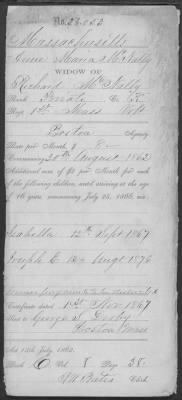 No. 28,052
Massachusetts
Anne Maria McNally
WIDOW OF
Richard McNally
Rank Private Co. K
Regt 1st Mass Vols
Boston Agency
Rate per Month, $ 8
Commencing 30th August 1862
Additional sum of $2 per Month for each
of the following children, until arriving at the age
of 16 years, commencing July 25, 1866, viz:
Isabella 12th Sept 1867
Joseph C. Augt 1876
Certificate dated 1st Nov 1867
Sent to George S.
Boston Mass
Act 14th July, 1862.
Vol 8 Page 38
Clerk